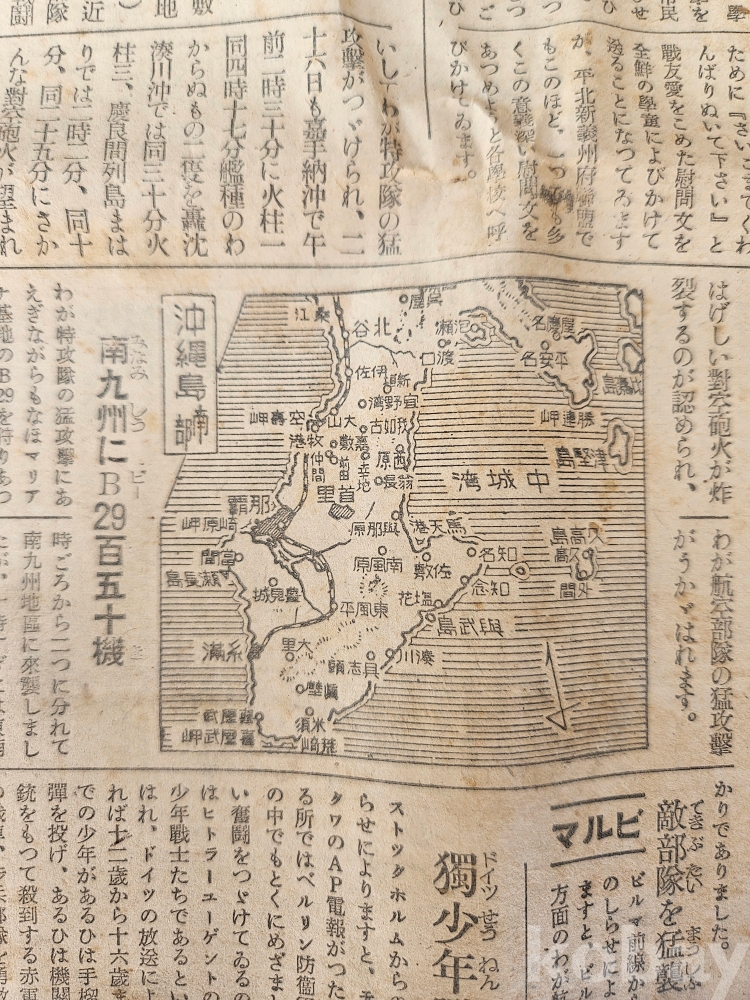 ために『さいごまでくわ
んばりぬいて下さい』と
戰友愛をこめた慰問文を
全鮮の學童によびかけて
送ることになつてゐます
が、平北新義州府聯盟で
もこのほど、一つでも多
くこの意義深い慰問文を
あつめようと各學校へ呼
びかけてゐます。
いしてわが特攻隊の猛
攻擊がつゞけられ、二
十六日も嘉手納沖で午
前二時三十分に火柱一
同四時十七分艦種のわ
からぬもの二隻を轟沈
湊川沖では同三十分火
柱三、慶良間列島まは
りでは二時二分、同十
分、同二十五分にさか
んな對空砲火が望まれ
はげしい對空砲火が炸
裂するのが認められ、
わが航空部隊の猛攻擊
がうかゞはれます。
沖繩島南部
北谷
中城灣
首里
那覇
糸滿
津堅島
久高島
勝連岬
平安名
屋慶名
渡口
伊佐
宜野灣
我如古
西原
翁長
幸地
嘉數
前田
仲間
大山
牧港
空壽岬
與那原
馬天港
南風原
東風平
佐敷
知名
知念
與武島
湊川
具志頭
大里
豐見城
當間
瀬長島
崎原岬
眞壁
米須
喜屋武
喜屋武岬
南九州にB29百五十機
みなみ しう ビー
わが特攻隊の猛攻擊にあ
えぎながらもなほマリア
ナ基地のB29を狩りあつ
時ごろから二つに分れて
南九州地區に來襲しまし
かりでありました。
ビルマ
敵部隊を猛襲
てきぶたい まうしふ
ビルマ前線か
のしらせによ
ますと、ビル
方面のわが精
獨少年
ドイツ せう ねん
ストツクホルムからの
らせによりますと、モ
タワのAP電報がつた
る所ではベルリン防衞
の中でもとくにめざまし
い奮鬪をつゞけてゐるの
はヒトラーユーゲントの
少年戰士たちであるとい
はれ、ドイツの放送によ
れば十二歲から十六歲ま
での少年があるひは手榴
彈を投げ、あるひは機關
銃をもつて殺到する赤軍
kobay